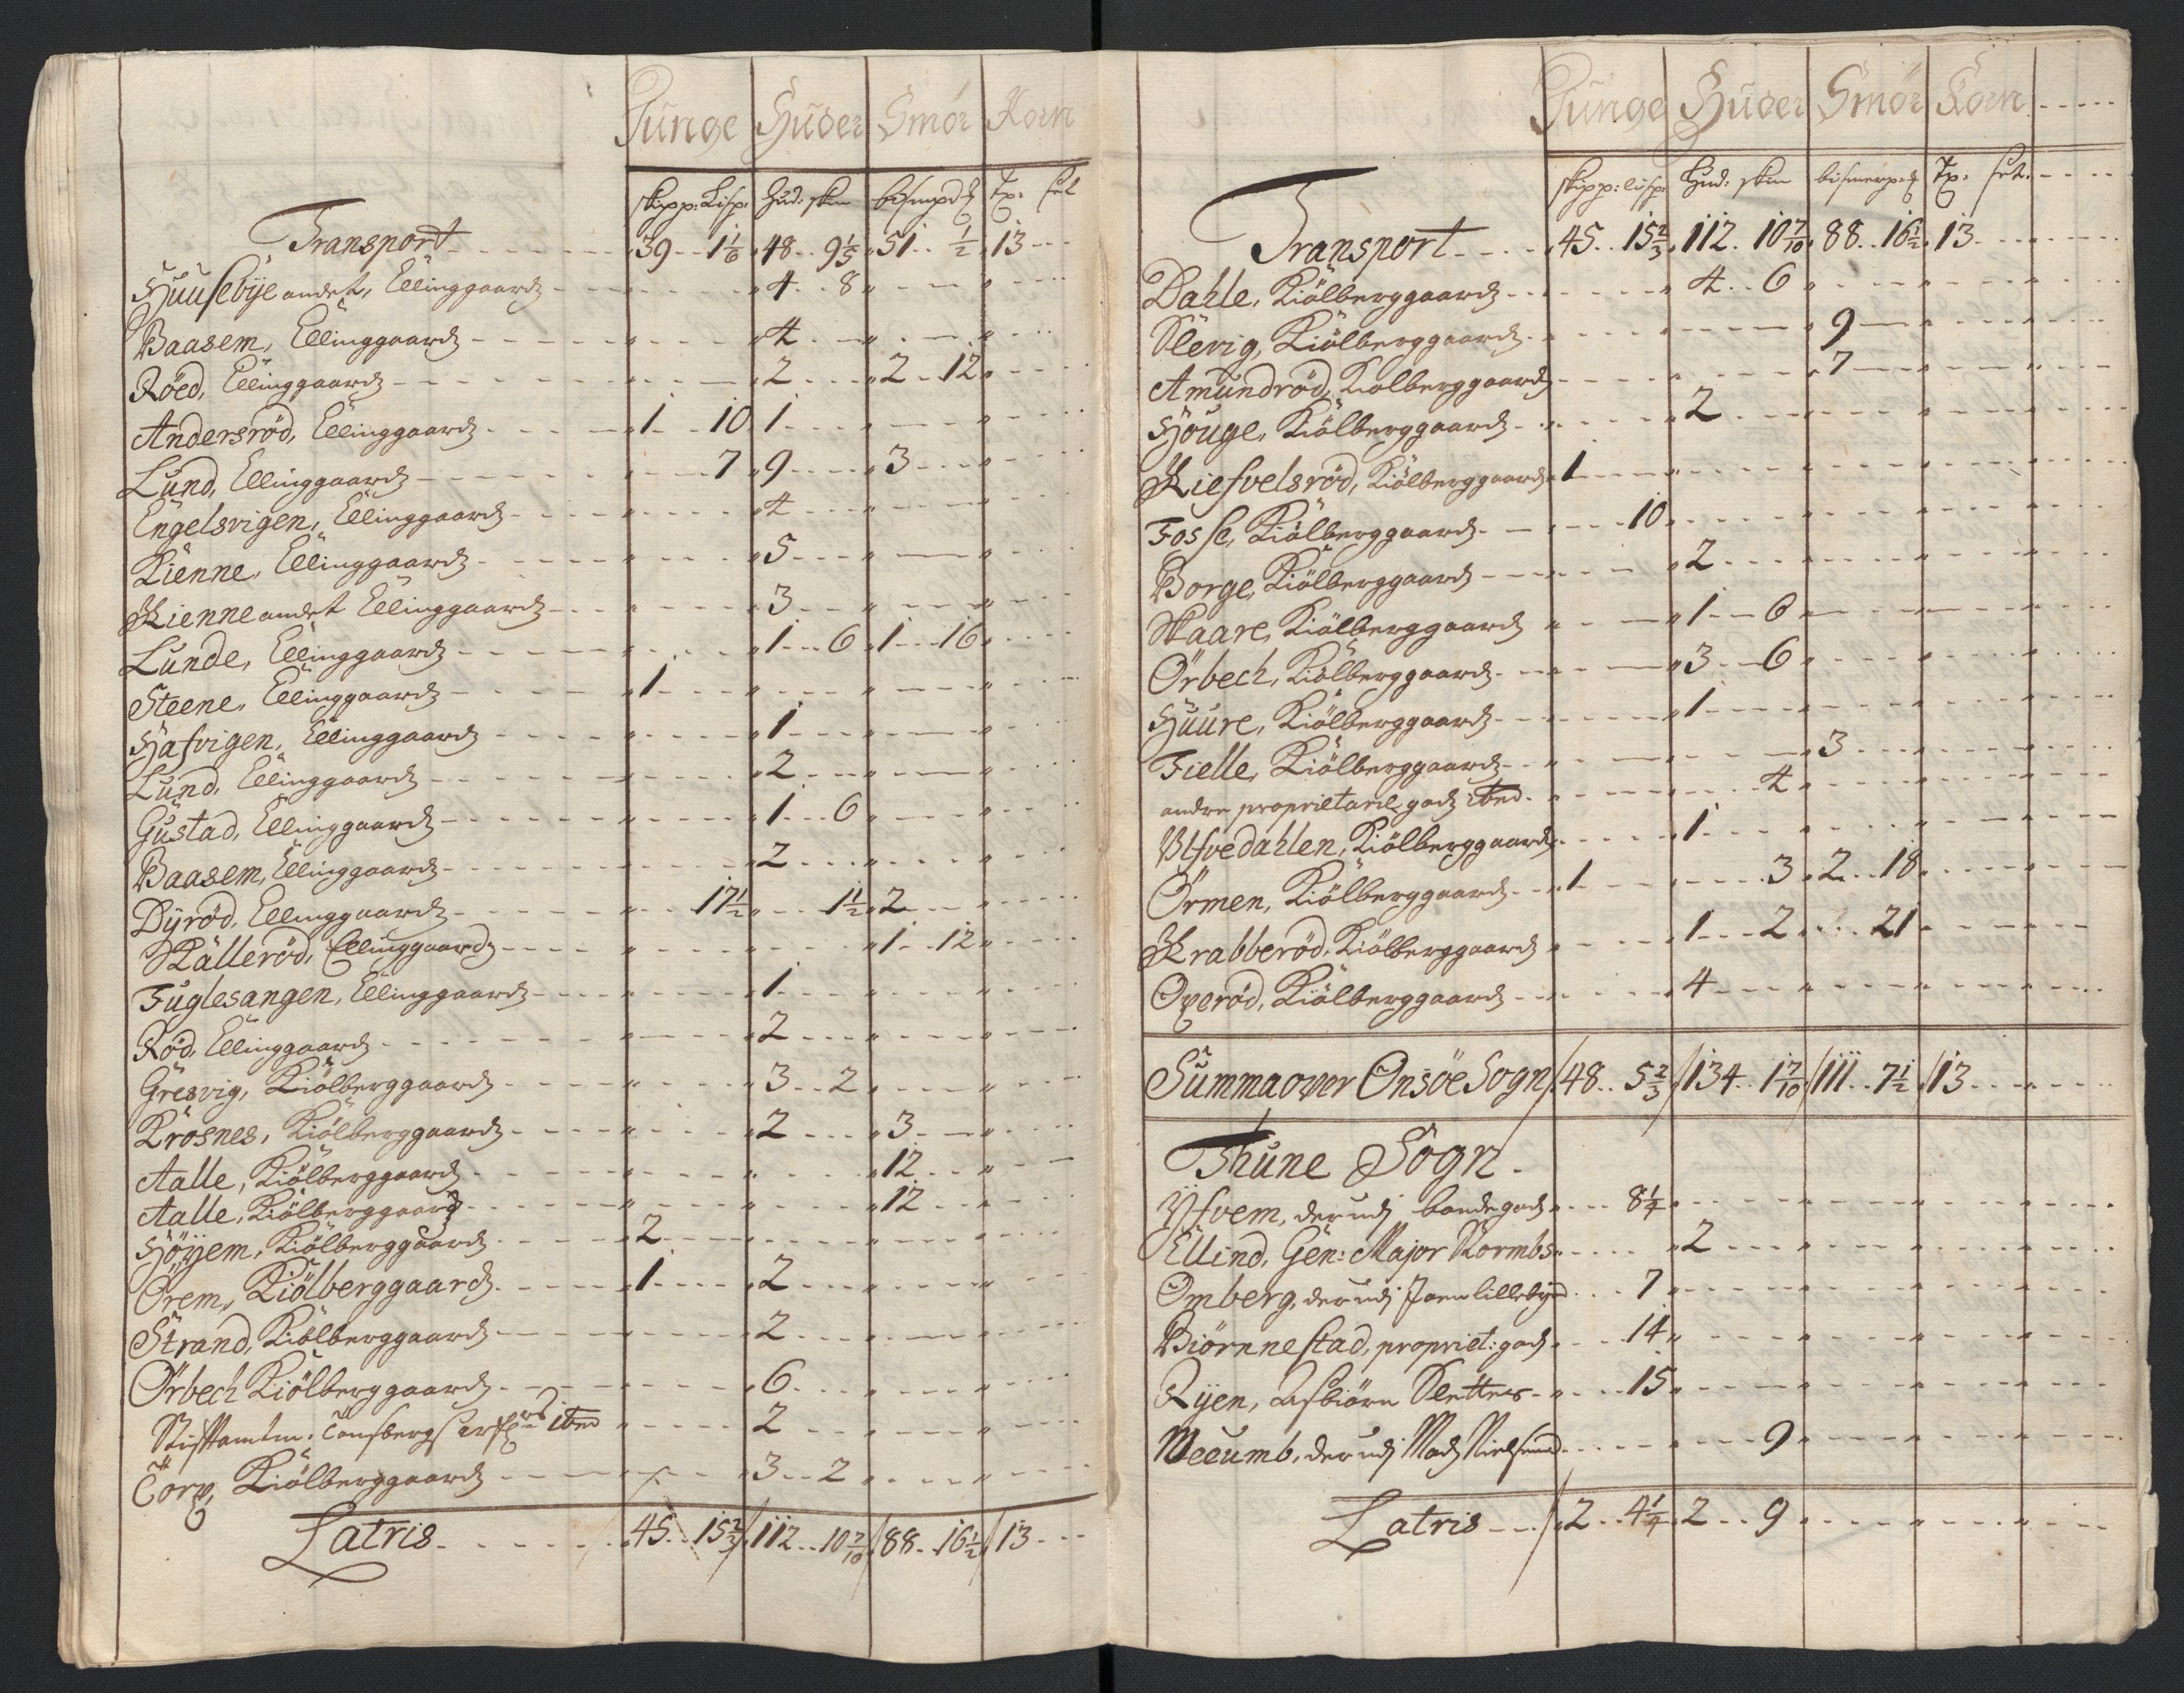 Tunge Huder Smör Korn
skipp: Lisp: Hud: skin bismpd Tr: set
Transport 39 1 1/6 48 9 1/5 51 1/2 13
Huusebÿe andet, Ellinggaard 4 8
Baasem, Ellinggaard 4
Röed, Ellinggaard 2 2 12
Andersröd, Ellinggaard 1 10 1
Lund, Ellinggaard 7 9 3
Engelsvigen, Ellinggaard 4
Kienne, Ellinggaard 5
Kienne andet Ellinggaard 3
Lunde, Ellinggaard 1 6 1 16
Steene, Ellinggaard 1
Hafvigen, Ellinggaard 1
Lund, Ellinggaard 2
Gustad, Ellinggaard 1 6
Baasem, Ellinggaard 2
Dÿröd, Ellinggaard 17 1/2 1 1/2 2
Skälleröd, Ellinggaard 1 12
Fuglesangen, Ellinggaard 1
Röd, Ellinggaard 2
Gresvig, Kiölberggaard 3 2
Krosnes, Kiölberggaard 2 3
Aalle, Kiölberggaard 12
Aalle, Kiölberggaard 12
Höÿem, Kiölberggaard 2
Örem, Kiölberggaard 1 2
Strand, Kiölberggaard 2
Örbech Kiölberggaard 6
Stiftamtm: Tönsbergs ibid 2
Torp, Kiölberggaard 3 2
Latris 45 15 2/3 112 10 7/10 88 16 1/2 13
Tunge Huder Smör Korn
skipp: lisp: Hud: skin bismerpd Tr: set
Transport 45 15 2/3 112 10 7/10 88 16 1/2 13
Dahle, Kiölberggaard 4 6
Slevig, Kiölberggaard 9
Amundröd, Kiölberggaard 7
Houge, Kiölberggaard 2
Kiefvelsröd, Kiölberggaard 1
Fosse, Kiölberggaard 10
Borge, Kiölberggaard 2
Skaare, Kiölberggaard 1 6
Örbech, Kiölberggaard 3 6
Huure, Kiölberggaard 1
Fielle, Kiölberggaard 3
andre proprietarie godz ibid 4
Ulfvedahlen, Kiölberggaard 1
Örmen, Kiölberggaard 1 3 2 18
Krabberöd, Kiölberggaard 1 2 21
Overöd, Kiölberggaard 4
Summa over Onsöe Sogn 48 5 2/3 134 1 7/10 111 7 1/2 13
Thune Sogn.
Ÿfvem, derudj bondegodz 8 1/4
Ellind, Gen: Major Stormbs 2
Omberg, derudj Joen lillebye 7
Biörnnestad, propriet: godz 14
Rÿen, Asbiörn Sletter 15
Meeumb, derudj Madz Nielsen 9
Latris 2 4 1/4 2 9